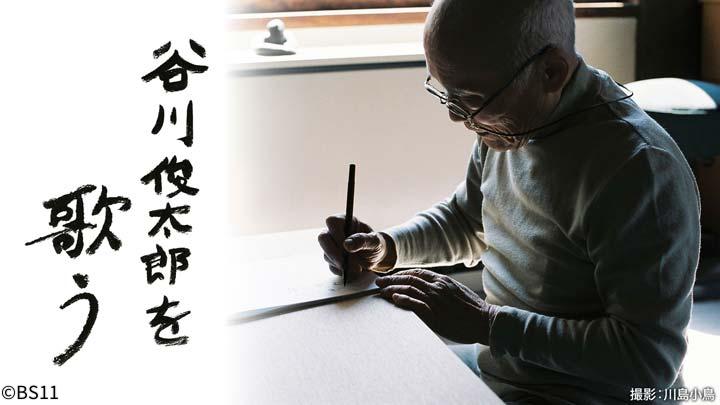 谷川俊太郎を
歌う
©BS11
撮影：川島小鳥